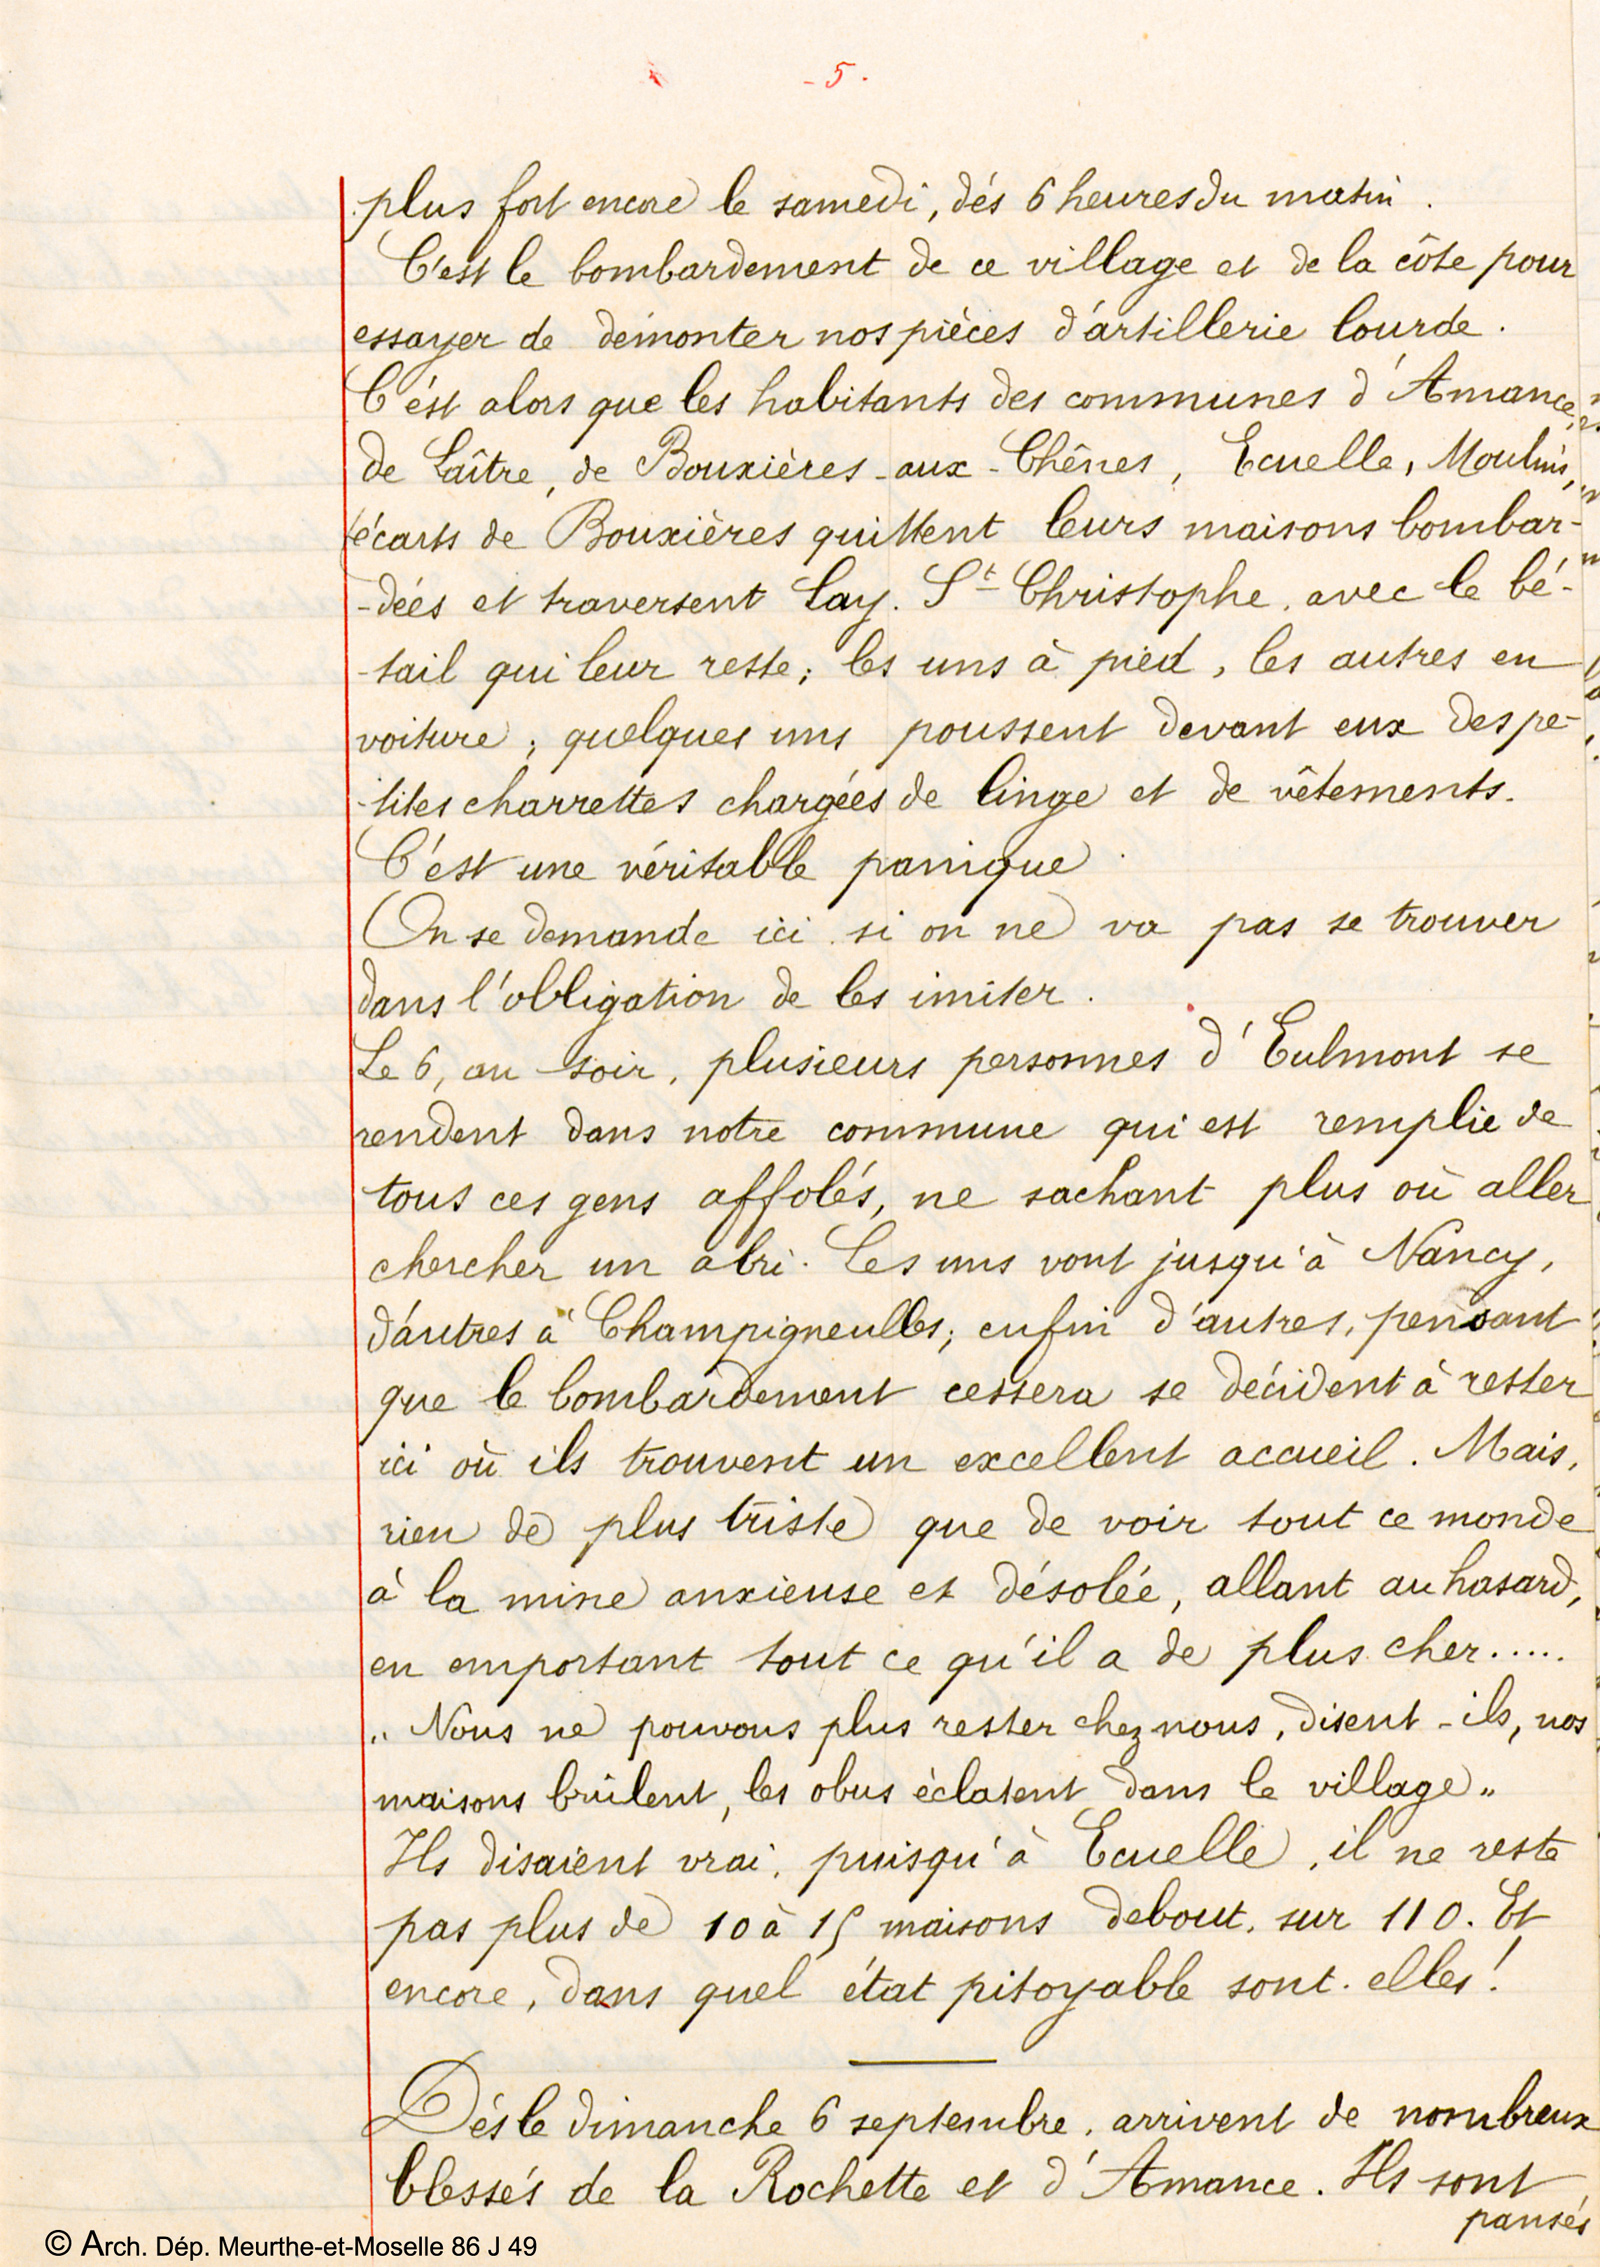 - 5 .
plus fort encore le samedi, dés 6 heures du matin .
C'est le bombardement de ce village et de la côte pour
essayer de démonter nos pièces d'artillerie lourde .
C'est alors que les habitants des communes d'Amance,
de Laître, de Bouxières-aux-Chênes, Ecuelle, Moulins,
(écarts de Bouxières quittent leurs maisons bombar-
-dées et traversent Lay. St Christophe, avec le bé-
-tail qui leur reste; les uns à pied, les autres en
voiture ; quelques uns poussent devant eux des pe-
-tites charrettes chargées de linge et de vêtements.
C'est une véritable panique .
On se demande ici si on ne va pas se trouver
dans l'obligation de les imiter .
Le 6, au soir, plusieurs personnes d'Eulmont se
rendent dans notre commune qui est remplie de
tous ces gens affolés, ne sachant plus où aller
chercher un abri. Les uns vont jusqu'à Nancy,
d'autres à Champigneulles; enfin d'autres, pensant
que le bombardement cessera se décident à rester
ici où ils trouvent un excellent accueil . Mais,
rien de plus triste que de voir tout ce monde
à la mine anxieuse et désolée, allant au hasard,
en emportant tout ce qu'il a de plus cher.....
" Nous ne pouvons plus rester chez nous, disent-ils, nos
maisons brûlent, les obus éclatent dans le village "
Ils disaient vrai, puisqu'à Ecuelle, il ne reste
pas plus de 10 à 15 maisons debout, sur 110. Et
encore, dans quel état pitoyable sont-elles !
Dés le dimanche 6 septembre, arrivent de nombreux
blessés de la Rochette et d'Amance. Ils sont
pansés
© Arch. Dép. Meurthe-et-Moselle 86 J 49